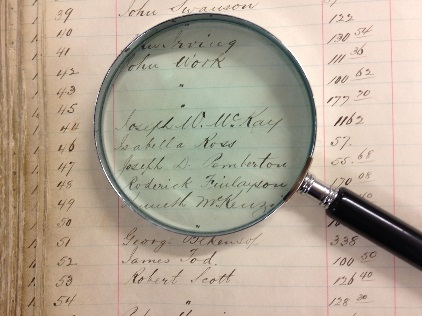 39 John Swanson 122
40 Irving 130 54
41 John Work 111 36
42 100 62
43 " 177 70
45
44 Joseph W. McKay 1162
46 Isabella Ross 57.
47 Joseph D. Pemberton 55.68
48 Roderick Finlayson 170 08
49 Kenneth McKenzie
50 "
51 George 338
52 James Tod. 100 50
53 Robert Scott 126 40
54 " 128 30